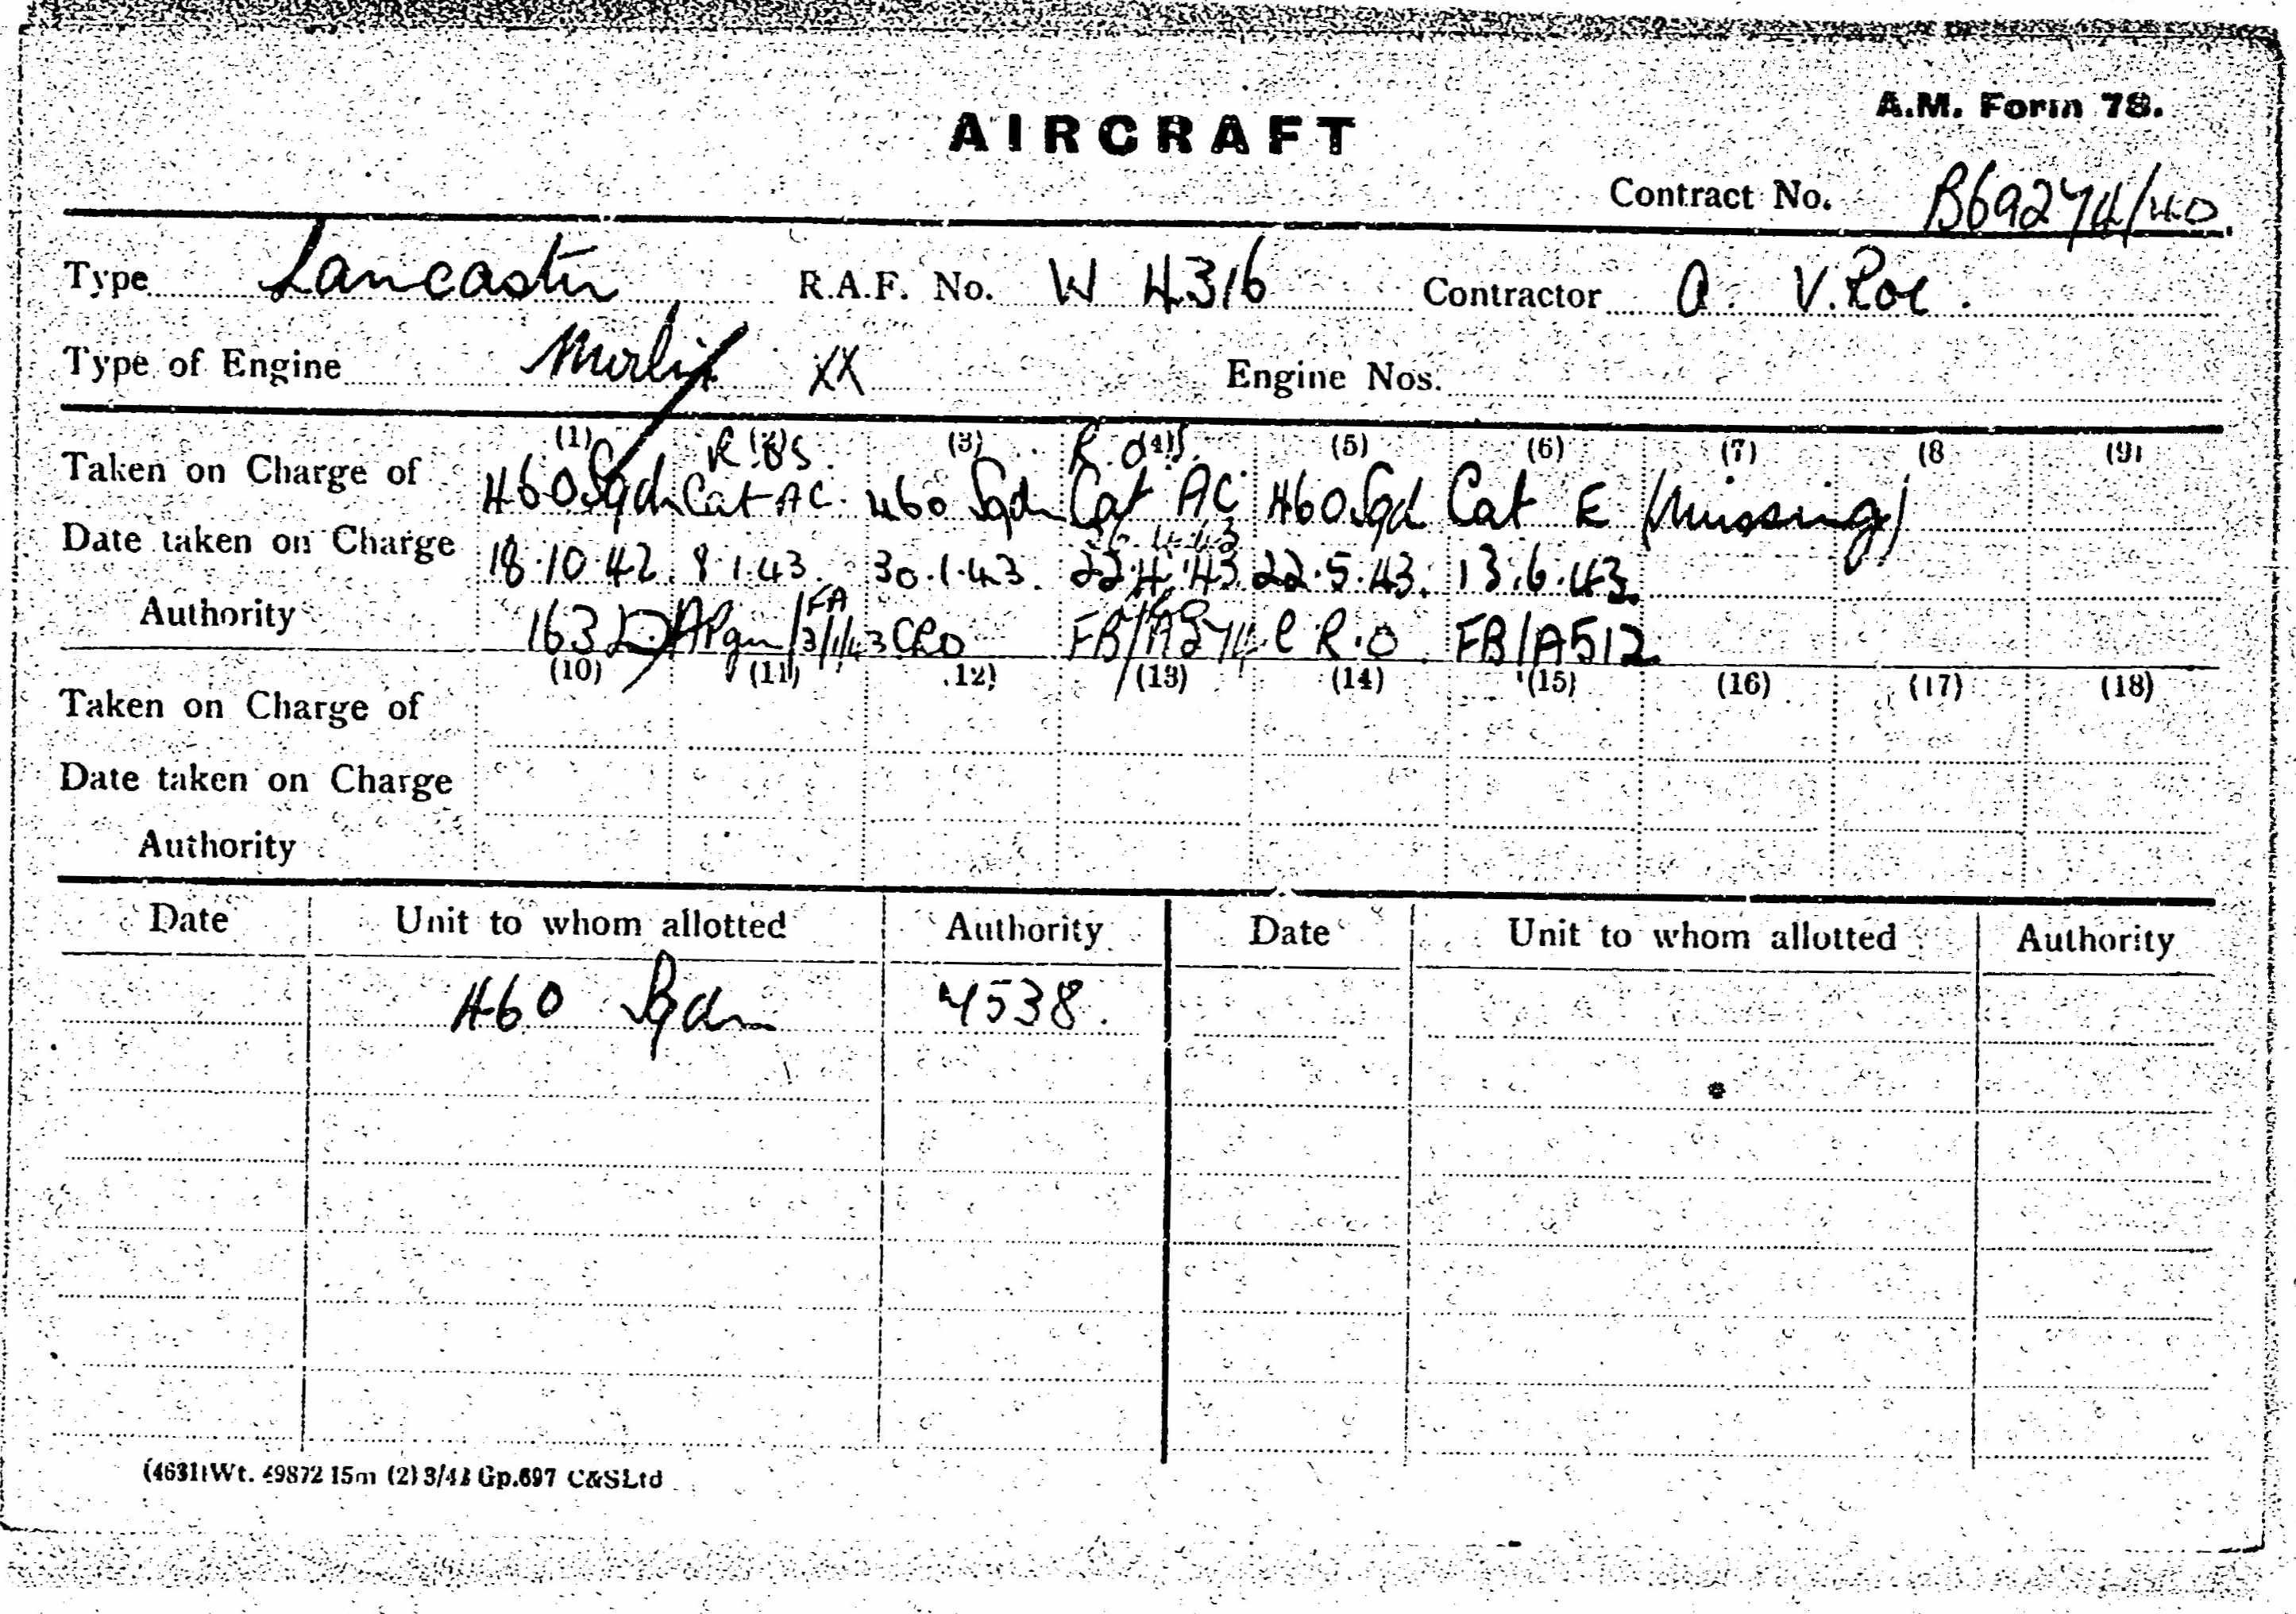 A.M. Form 78.
AIRCRAFT
Contract No. B69274/40
Type Lancaster R.A.F. No. W 4316 Contractor A. V. Roe.
Type of Engine Merlin XX Engine Nos.
(1) (2) (3) (4) (5) (6) (7) (8 (9)
R. O. S.
Taken on Charge of 460 Sqdn Cat AC 460 Sqdn Cat AC 460 Sqd Cat E (Missing)
26.4.43
Date taken on Charge 18.10.42 8.1.43. 30.1.43. 22.4.43. 22.5.43. 13.6.43.
Authority 163 FA 3/1/43 CRO C R.O FB/A512
(10) (11) 12) (13) (14) (15) (16) (17) (18)
Taken on Charge of
Date taken on Charge
Authority
Date Unit to whom allotted Authority Date Unit to whom allotted Authority
460 Sqdn 4538.
(4631) Wt. 49872 15m (2) 3/42 Gp.697 C&SLtd